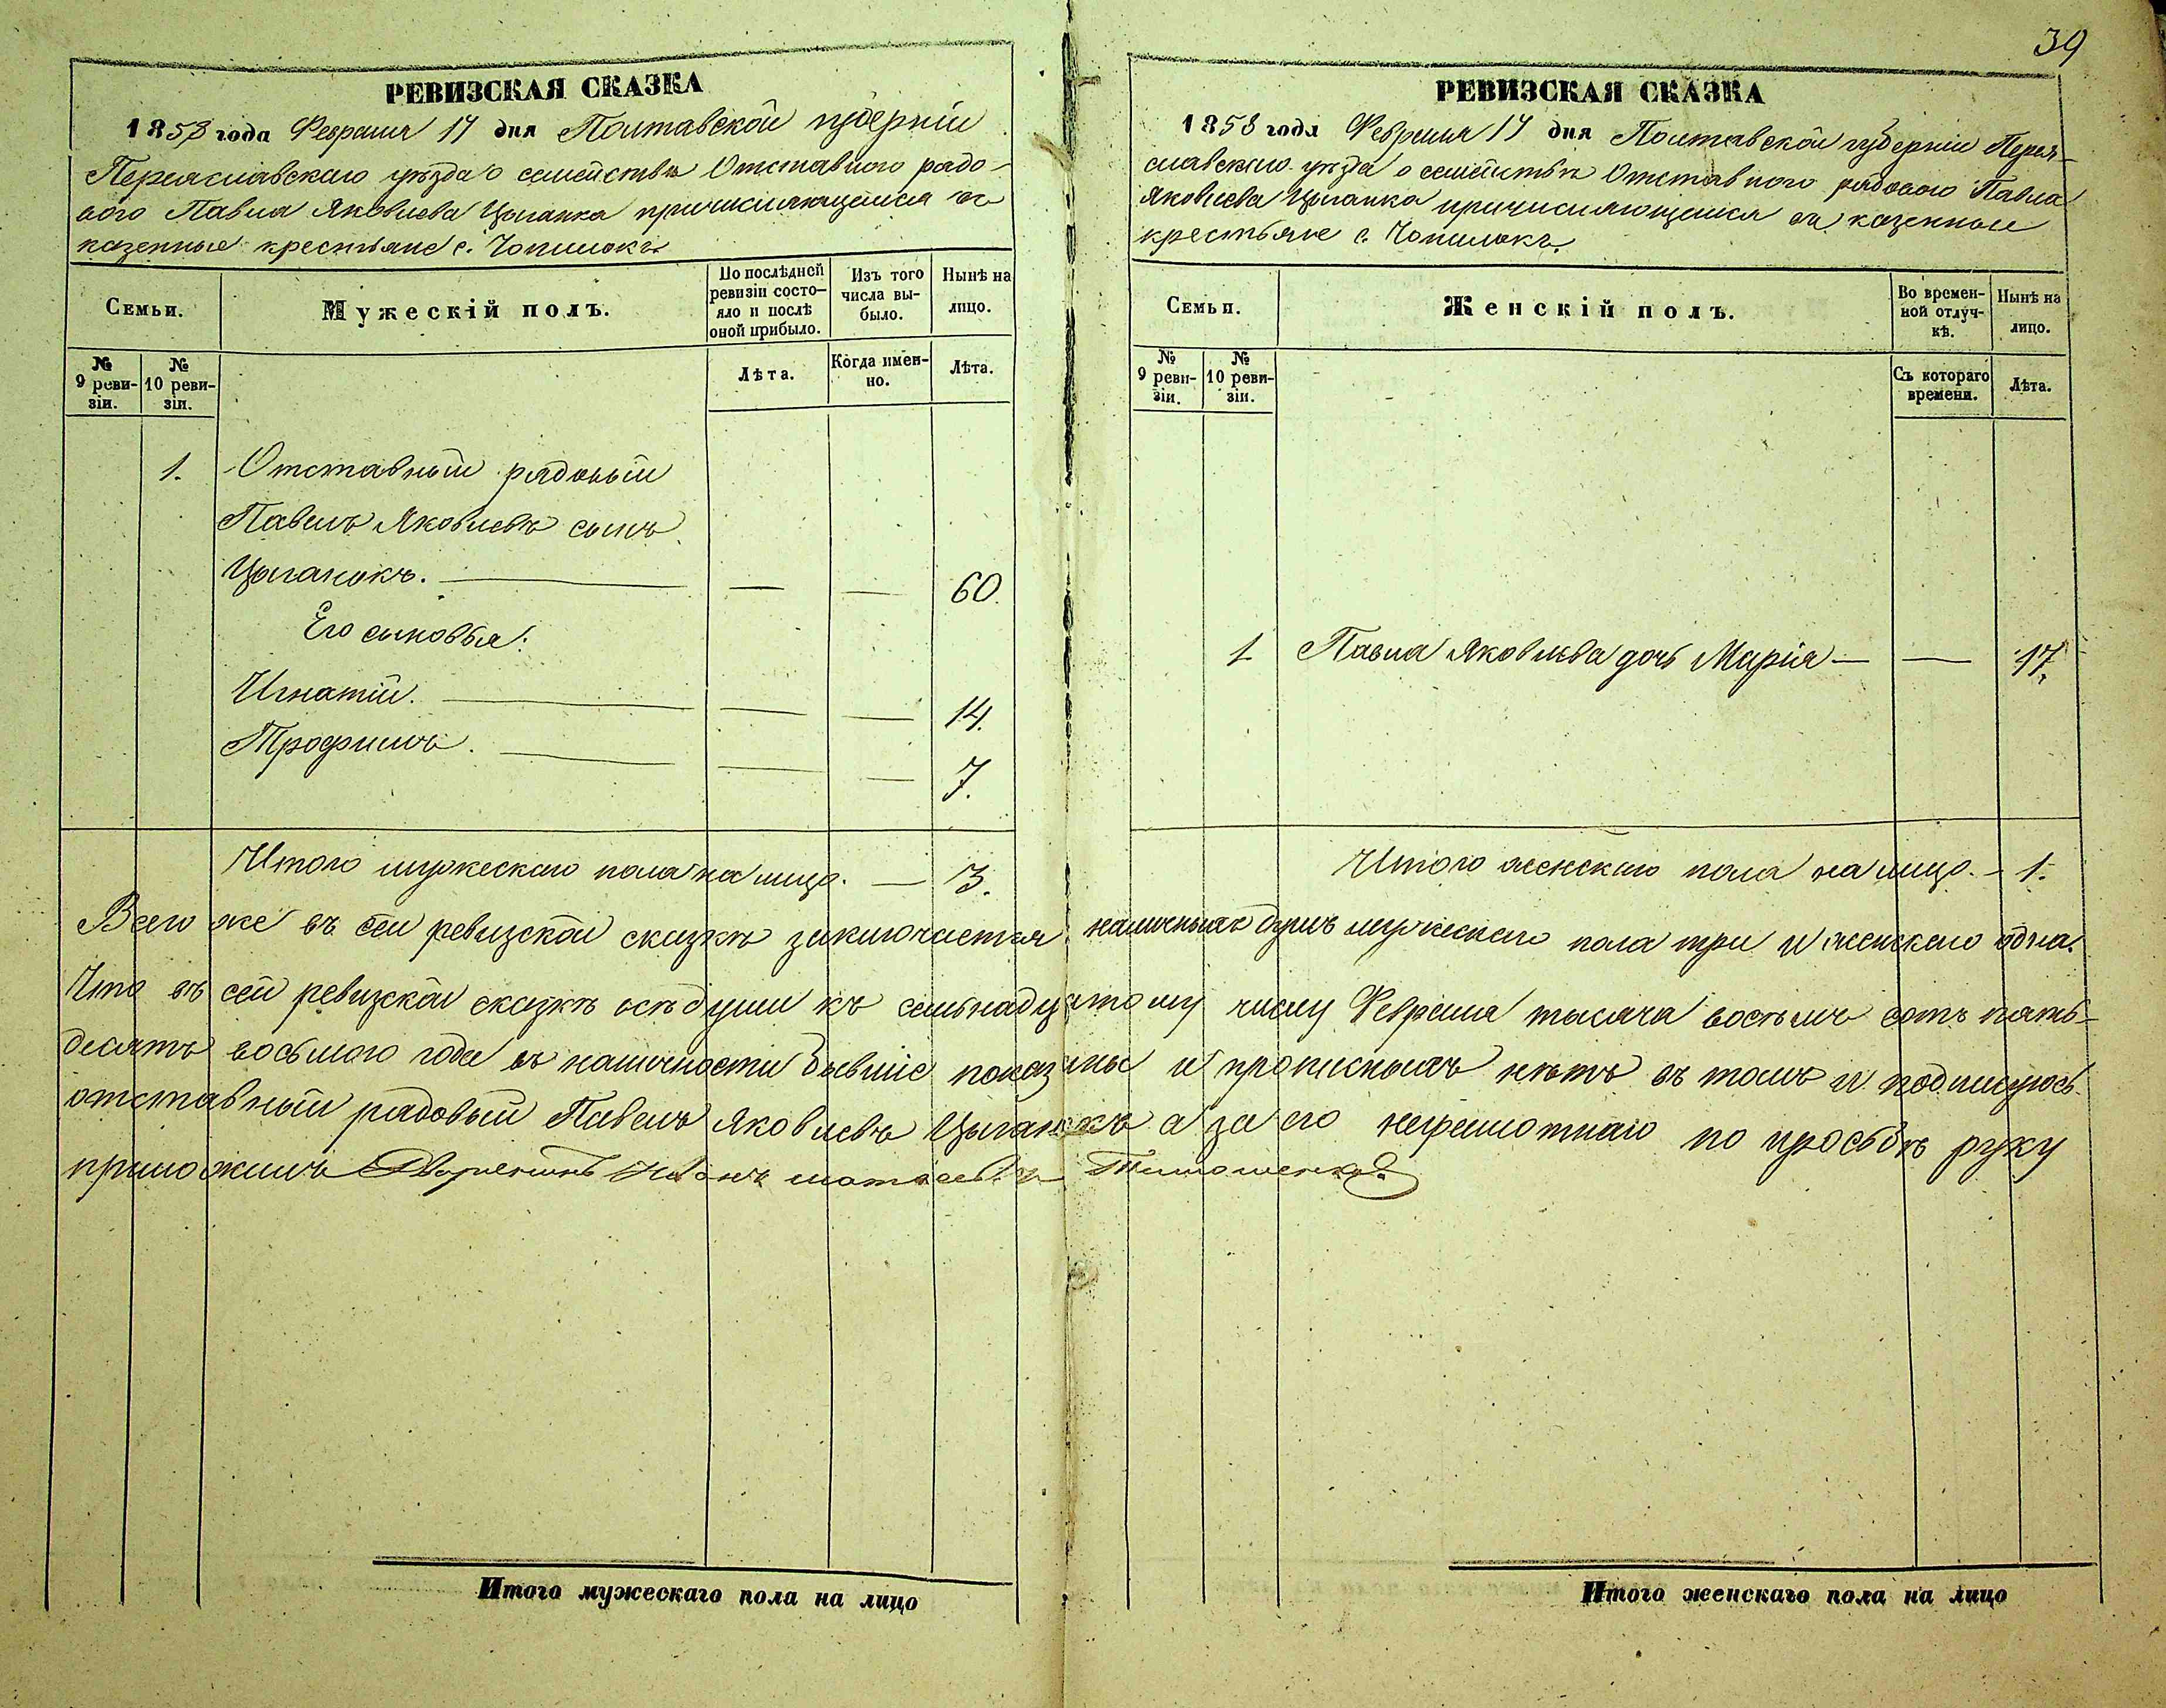 39
РЕВИЗСКАЯ СКАЗКА
1858 года Февраля 17 дня Полтавской губерніи
Переяславскаго уѣзда о семействѣ Отставного рядо-
вого Павла Яковлева Цыганка причисляющемся въ
казенные крестьяне с. Чопилокъ
Семьи.
Мужескій полъ.
По послѣдней ревизіи состо-
яло и послѣ оной прибыло.
Изъ того числа вы-
было.
Нынѣ на лицо.
№ 9 реви-
зіи.
№ 10 реви-
зіи.
Лѣта.
Когда имен-
но.
Лѣта.
1. Отставный рядовый
Павелъ Яковлевъ сынъ
Цыганокъ. — — — 60.
Его сыновья:
Игнатій. — — — 14.
Трофимъ. — — — 7.
Итого мужескаго пола на лицо. — 3.
РЕВИЗСКАЯ СКАЗКА
1858 года Февраля 17 дня Полтавской губерніи Перея-
славскаго уѣзда о семействѣ Отставного рядового Павла
Яковлева Цыганка причисляющемся въ казенные
крестьяне с. Чопилокъ.
Семьи.
Женскій полъ.
Во времен-
ной отлуч-
кѣ.
Нынѣ на лицо.
№ 9 реви-
зіи.
№ 10 реви-
зіи.
Съ котораго времени.
Лѣта.
1 Павла Яковлева дочь Марія — — 17.
Итого женскаго пола на лицо. — 1.
Всего же въ сей ревизской сказкѣ заключается наличныхъ душъ мужескаго пола три и женскаго одна.
Что въ сей ревизской сказкѣ всѣ души къ семьнадцатому числу Февраля тысяча восемь сотъ пять-
десятъ восьмого года въ наличности бывшіе показаны и прописныхъ нѣтъ въ томъ и подпишусь
отставный рядовый Павелъ Яковлевъ Цыганокъ а за его неграмотнаго по просьбѣ руку
приложилъ Дворянинъ Иванъ Тимошенко.
Итого мужескаго пола на лицо
Итого женскаго пола на лицо